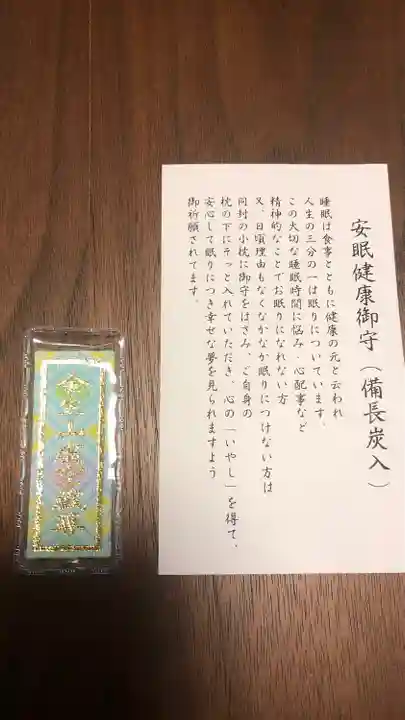 安眠健康御守（備長炭入）
睡眠は食事とともに健康の元と云われ
人生の三分の一は眠りについています。
この大切な睡眠時間に悩み・心配事など
精神的なことでお眠りになれない方
又、日頃理由もなくなかなか眠りにつけない方は
同封の小枕に御守をはさみ、ご自身の
枕の下にそっと入れていただき、心の「いやし」を得て、
安心して眠りにつき幸せな夢を見られますよう
御祈願されてます。